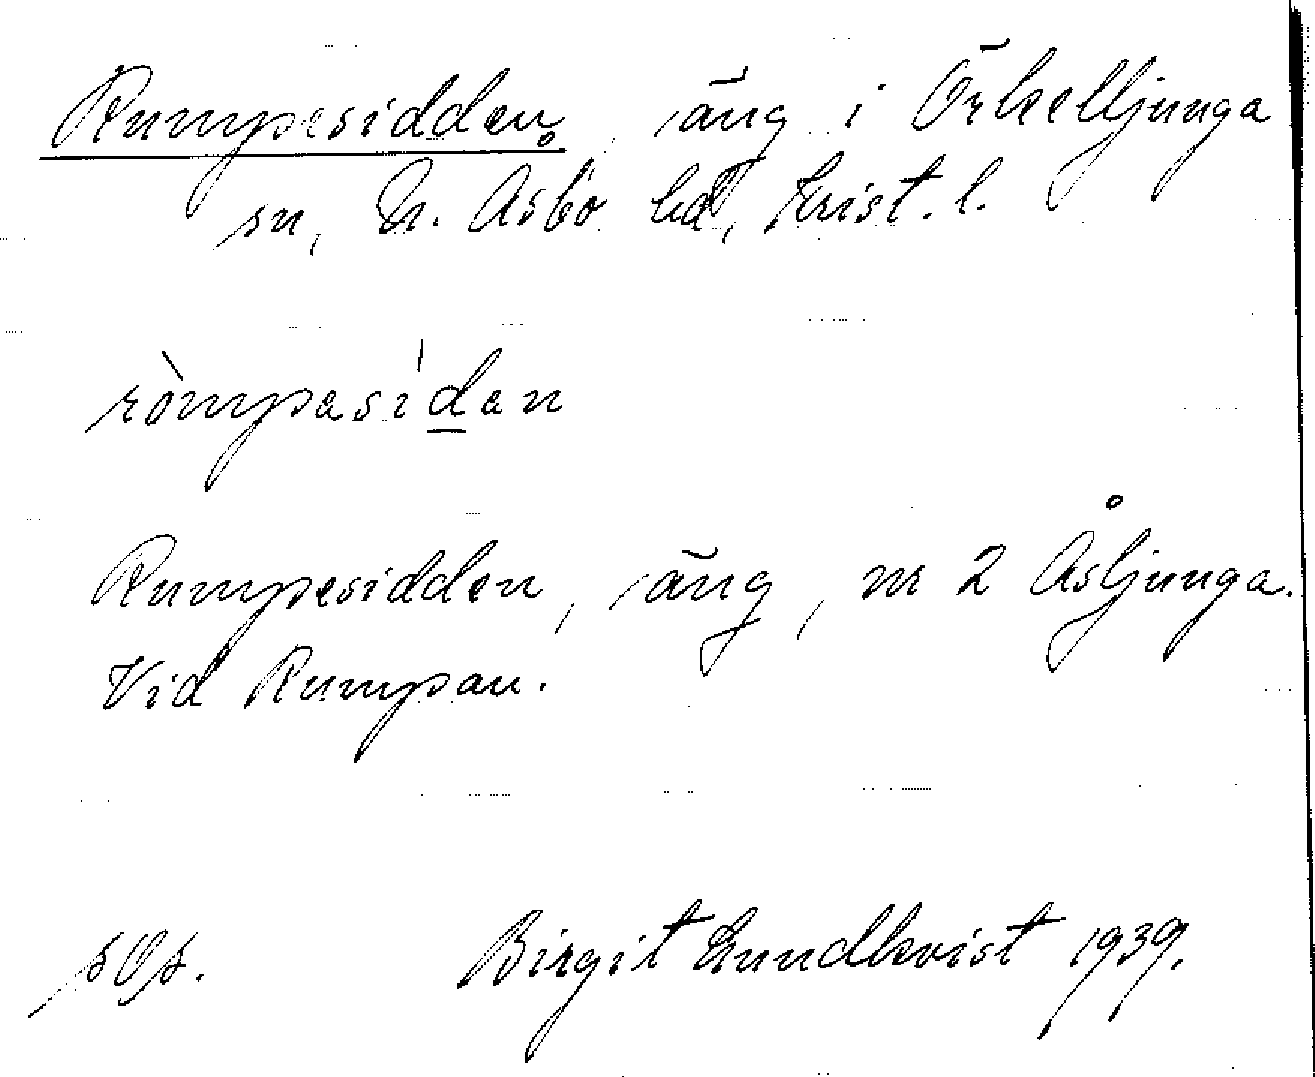 Rumpesidden, äng i Örkelljunga
sn, N. Åsbo hd, Krist. l.
ròmpasíd̲an
Rumpesidden, äng, nr 2 Åsljunga.
Vid Rumpan.
Birgit Lundkvist 1939.